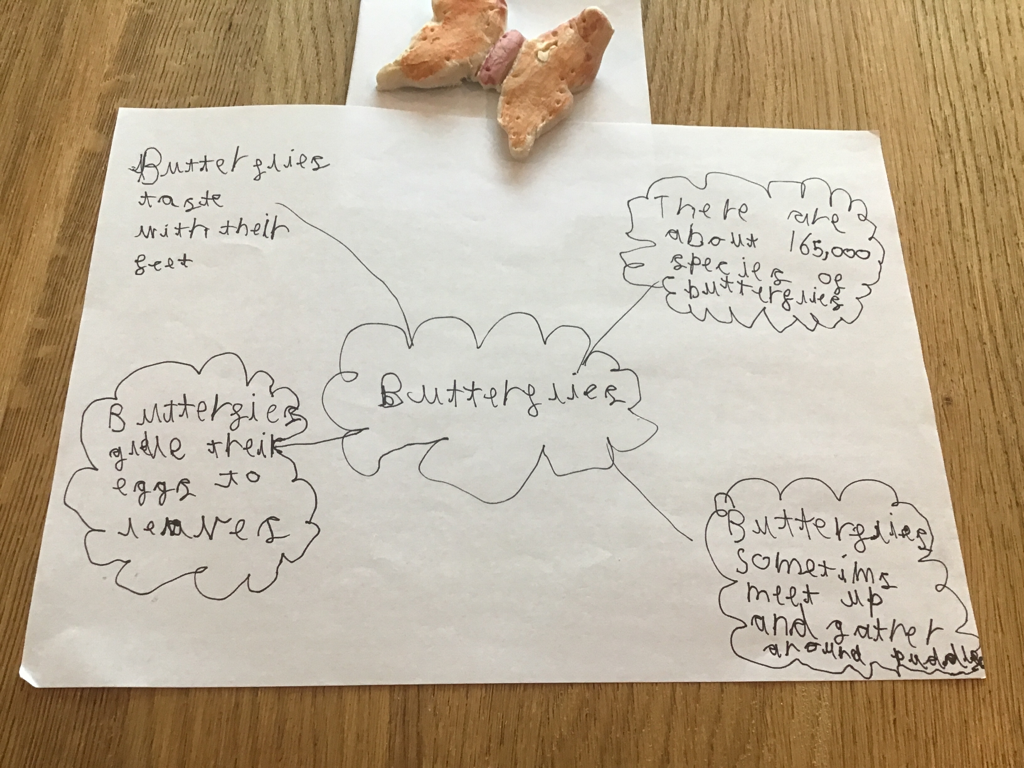 Butterflies
taste
with their
feet
There are
about 165,000
species of
butterflies
Butterflies
Butterflies
glue their
eggs to
leaves
Butterflies
sometims
meet up
and gather
around puddls